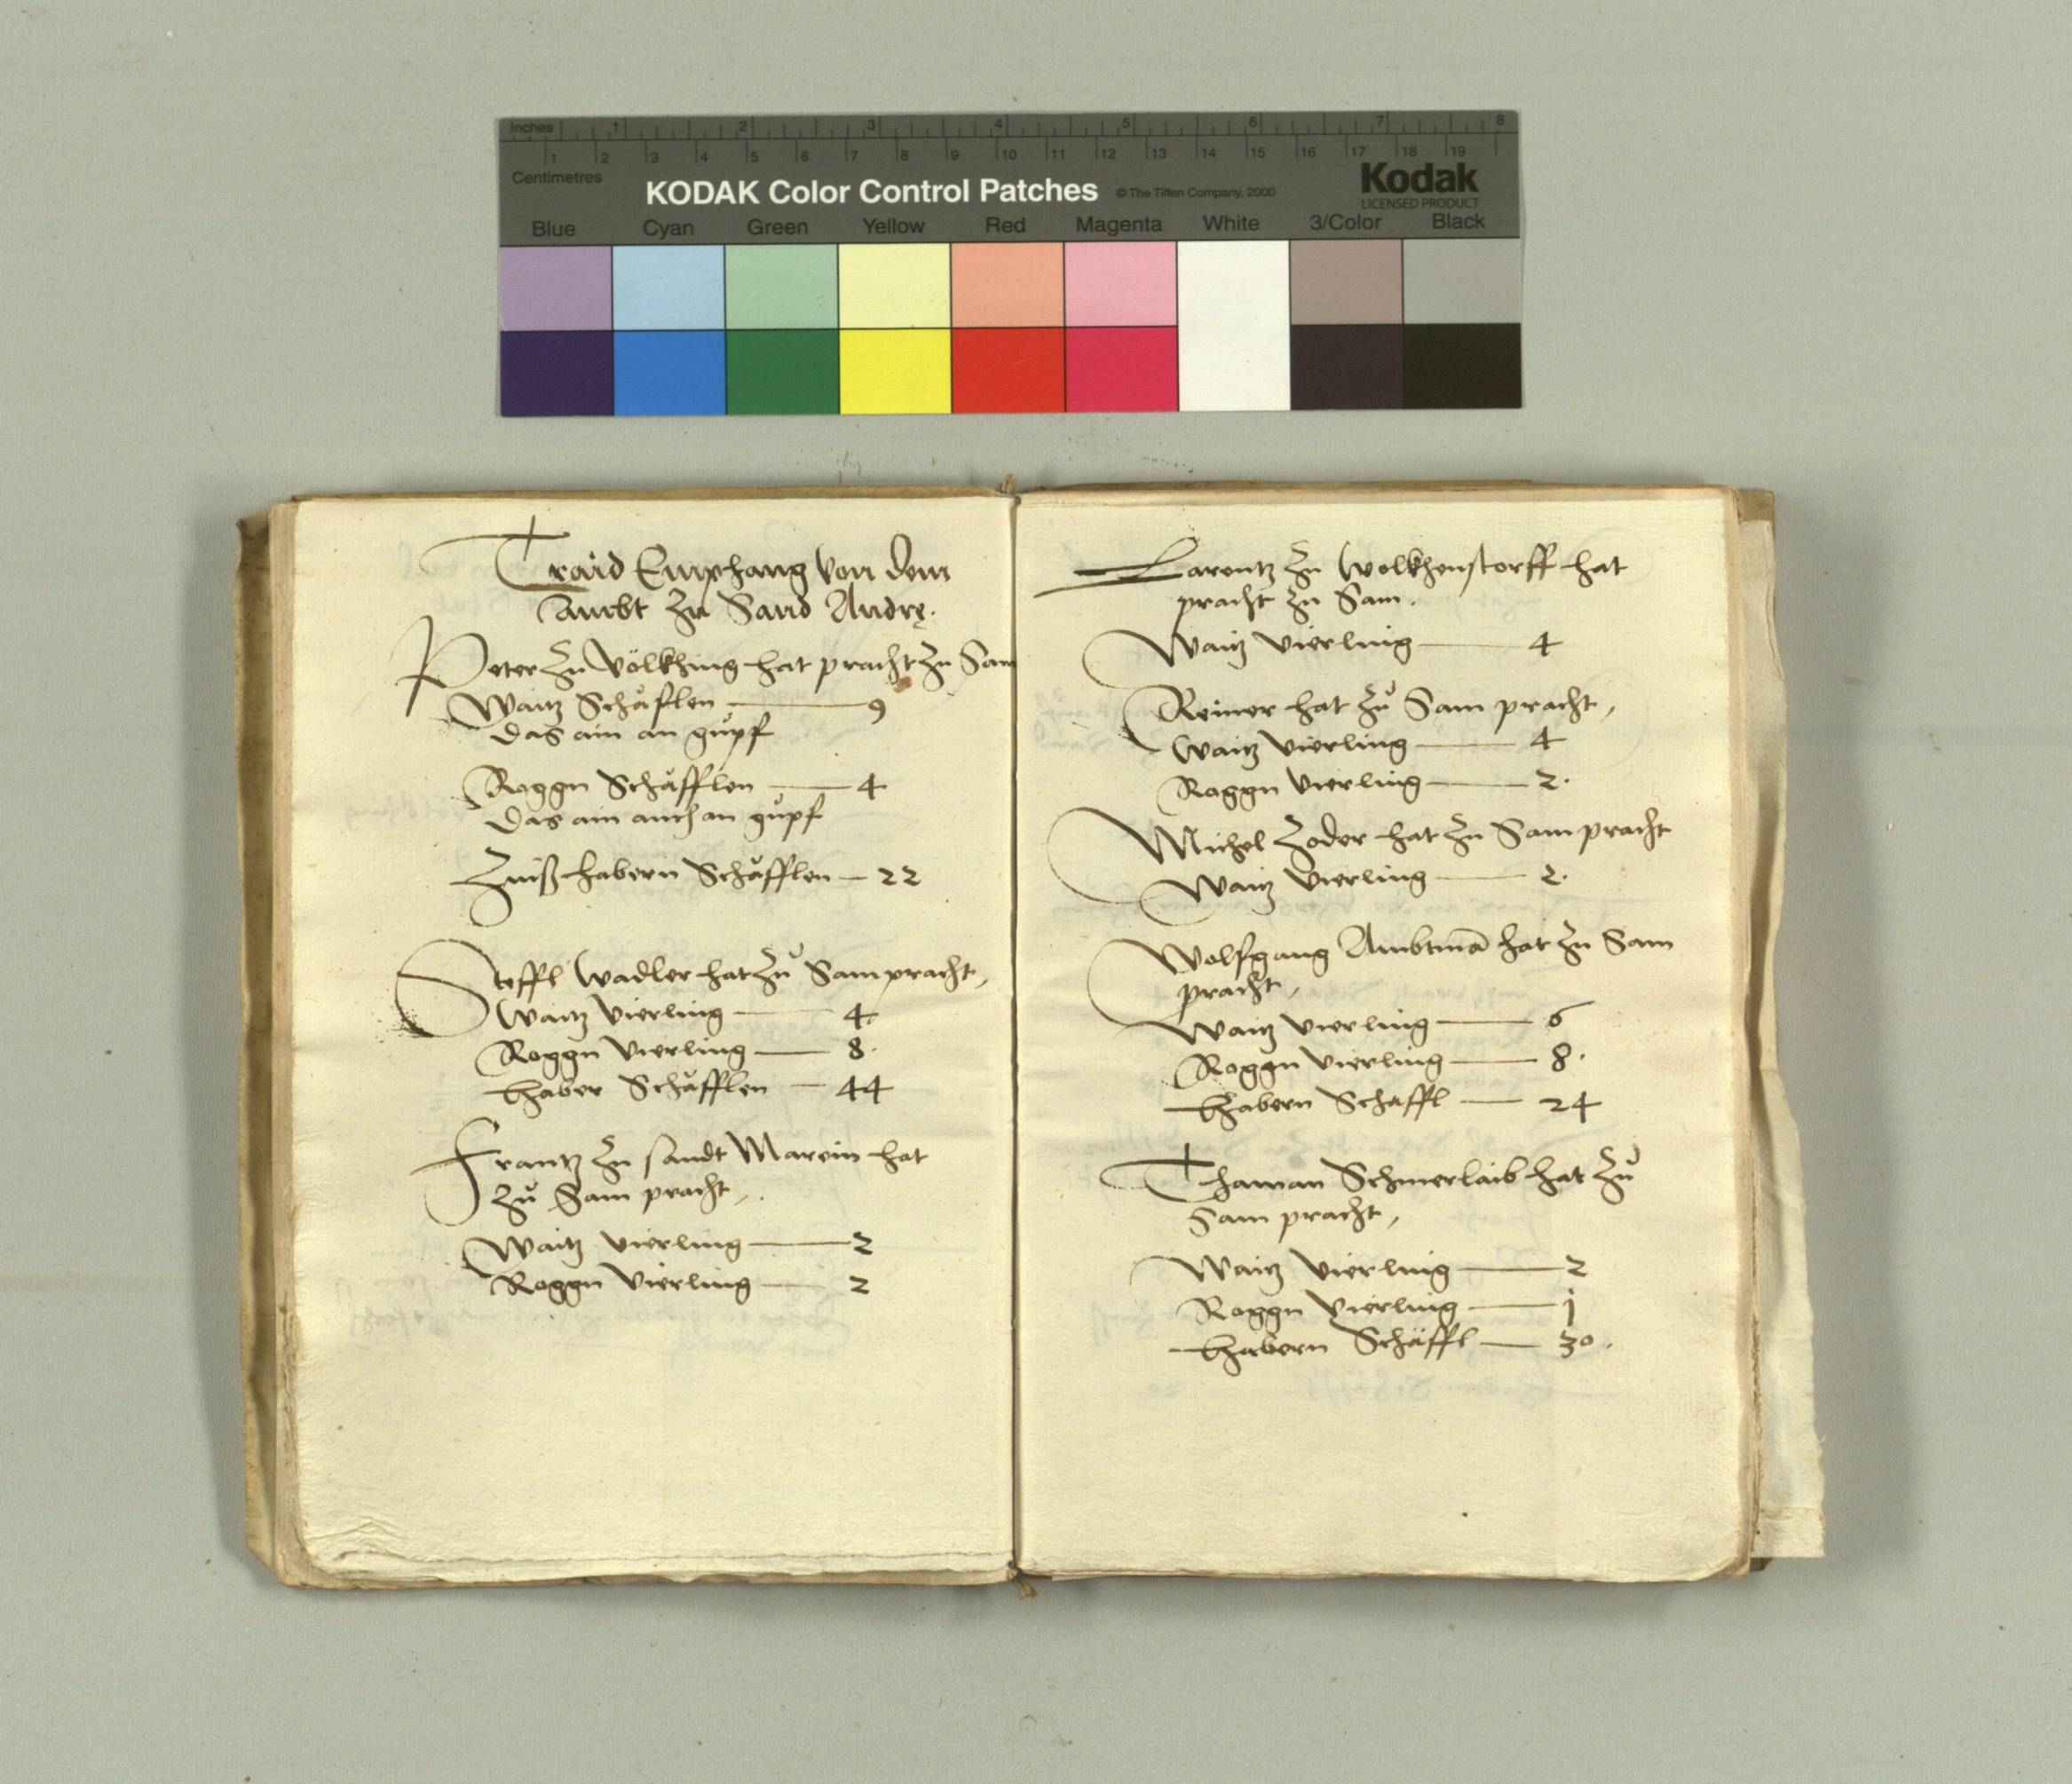 Inches 1 2 3 4 5 6 7 8
1 2 3 4 5 6 7 8 9 10 11 12 13 14 15 16 17 18 19
Centimetres
KODAK Color Control Patches © The Tiffen Company, 2000 Kodak
LICENSED PRODUCT
Blue Cyan Green Yellow Red Magenta White 3/Color Black
Traid Emphang von dem
Ambt zu Sand Andrę.
Peter zu Völkhing hat pracht zu Sam
Waitz Schäflen 9
das ain an gupf
Roggn Schäfflen 4
das ain auch an gupf
Zinßhabern Schäfflen 22
Steffl Wadler hat zu Sam pracht,
Waitz vierling 4
Roggn vierling 8.
Haber Schäfflen 44
Frantz zu sandt Marein hat
zu Sam pracht,
Waitz vierling 2
Roggn vierling 2
Larentz zu Wolkhenstorff hat
pracht zu Sam.
Waitz vierling 4
Reiner hat zu Sam pracht,
Waitz vierling 4
Roggn vierling 2.
Michel Zoder hat zu Sam pracht
Waitz vierling 2.
Wolfgang Ambtmā hat zu Sam
pracht,
Waitz vierling 6
Roggn vierling 8.
Habern Schaffl 24
Thaman Schmerlaib hat zu
Sam pracht,
Waitz vierling 2
Roggn vierling 1
Habern Schäffl 30.